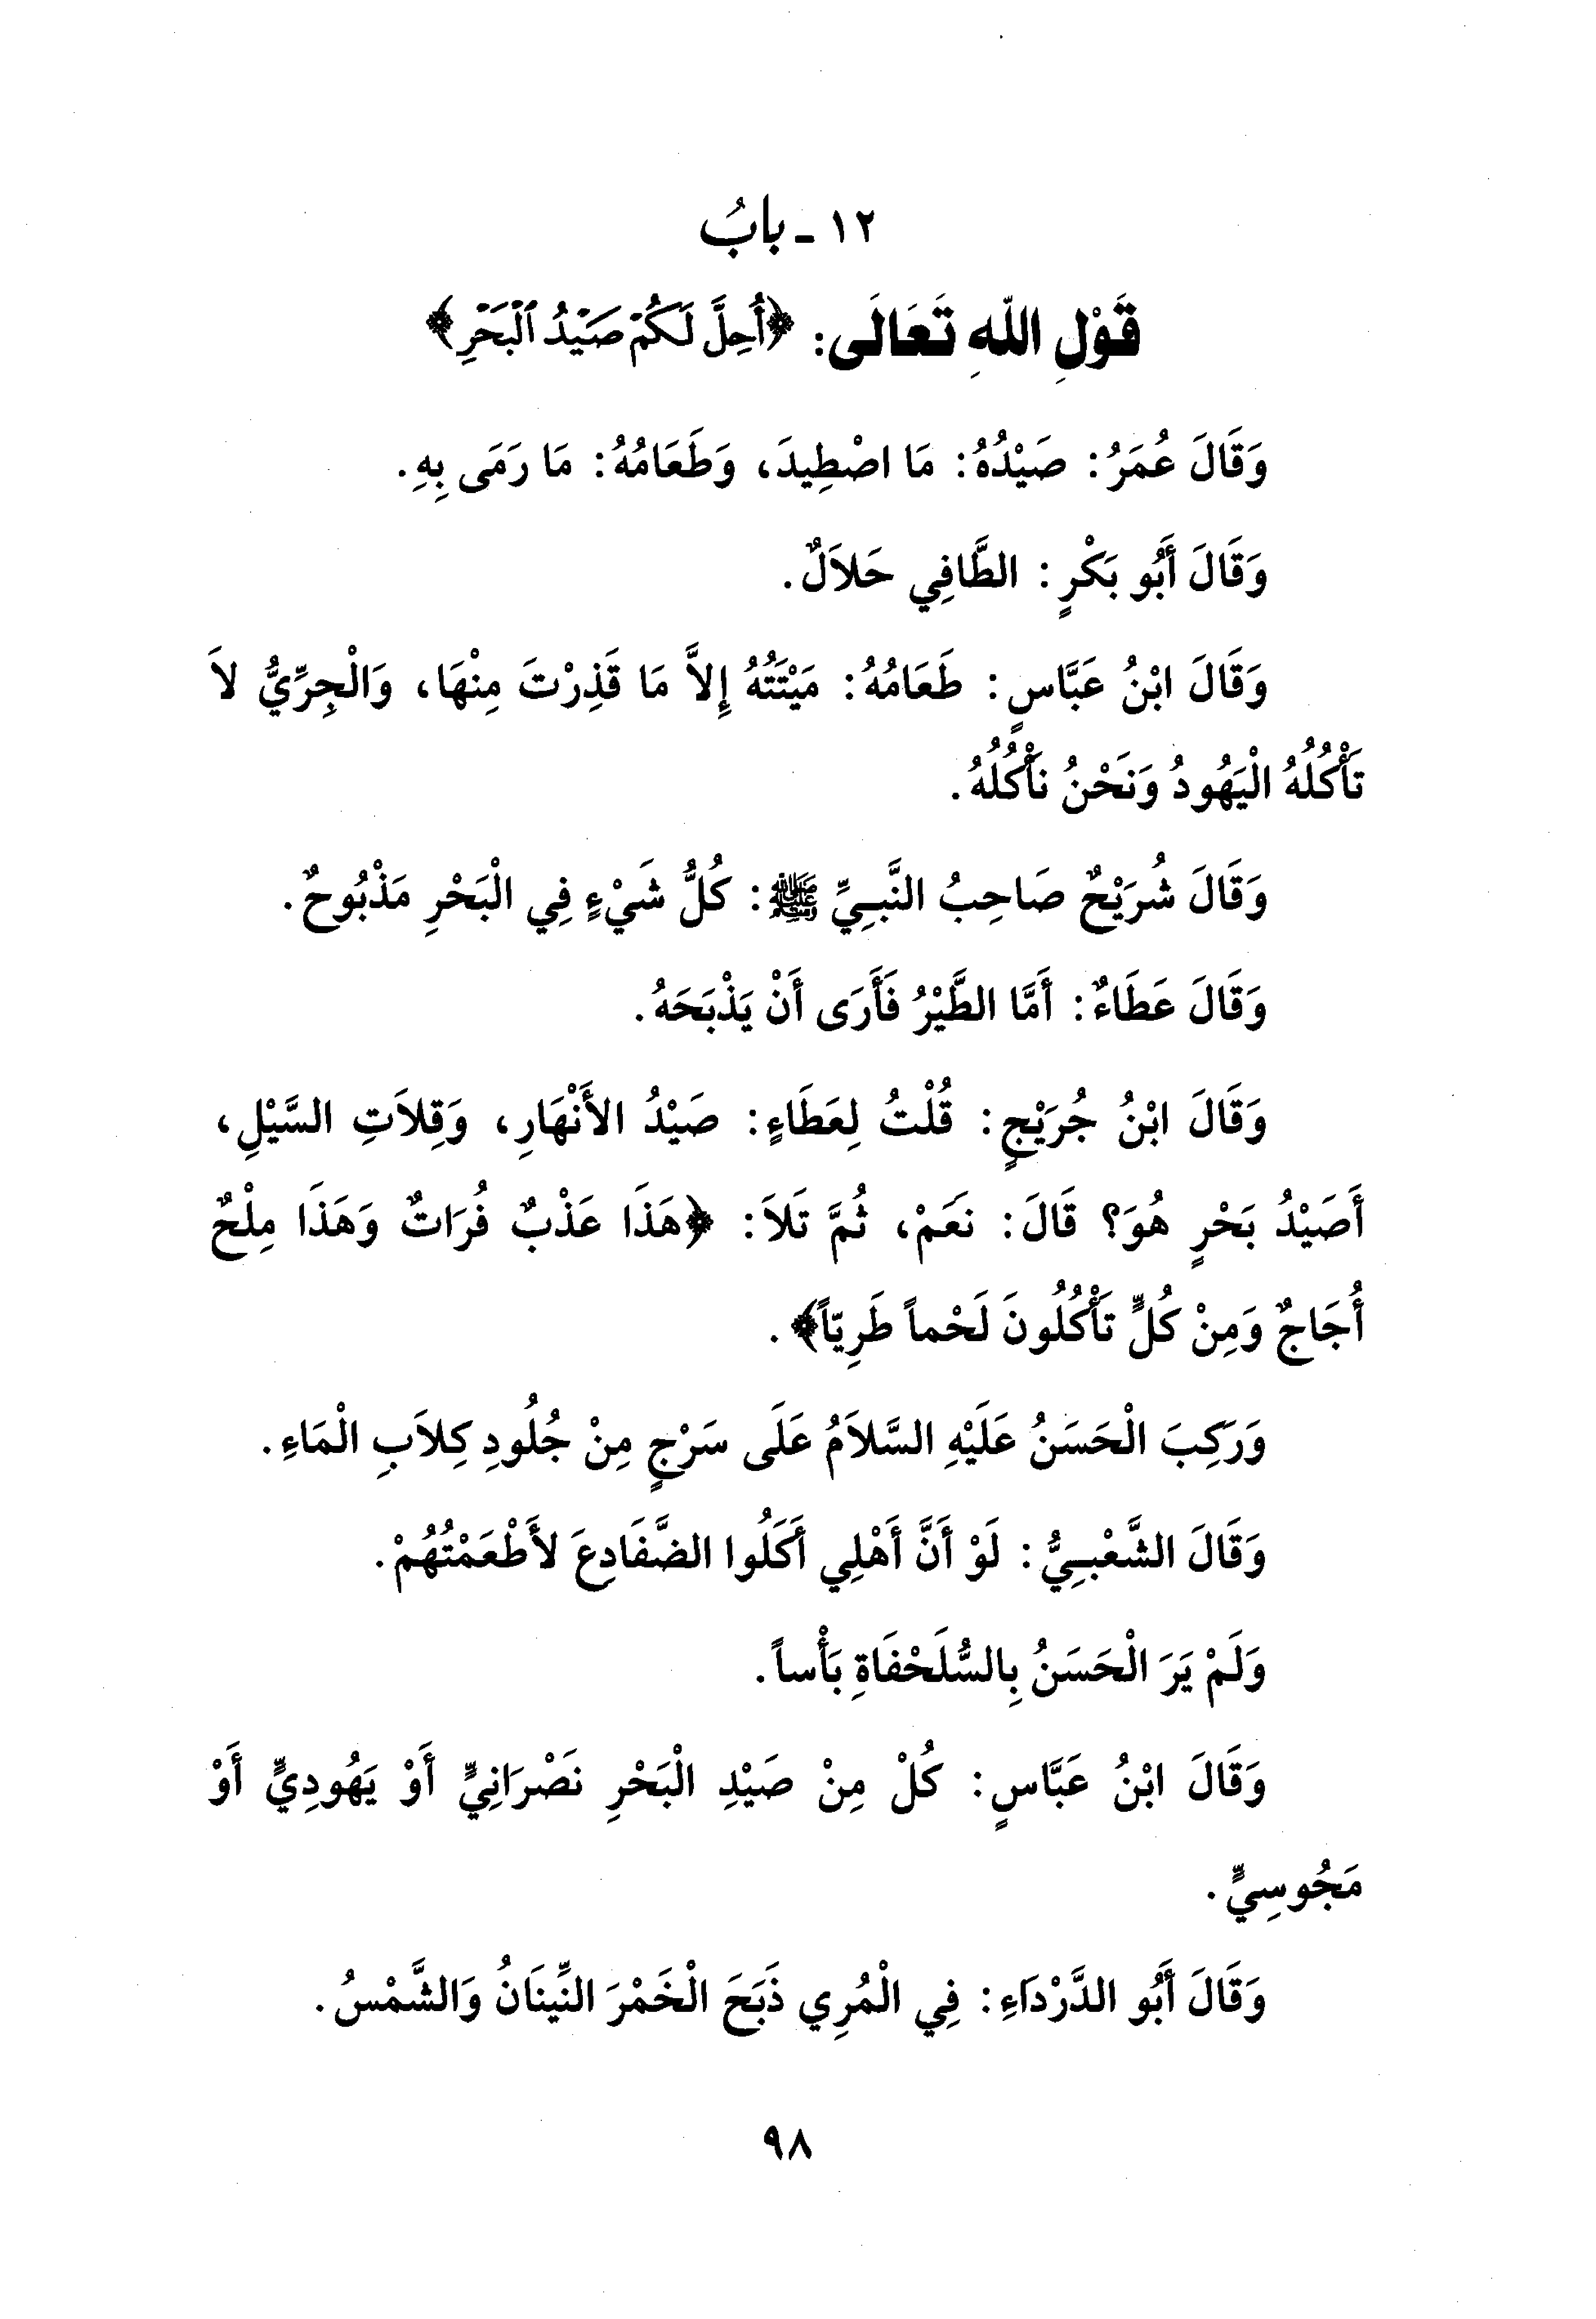 ١٢ - بابُ
قَوْلِ اللهِ تَعَالَى: ﴿أُحِلَّ لَكُمْ صَيْدُ ٱلْبَحْرِ﴾
وَقَالَ عُمَرُ: صَيْدُهُ: مَا اصْطِيدَ، وَطَعَامُهُ: مَا رَمَى بِهِ.
وَقَالَ أَبُو بَكْرٍ: الطَّافِي حَلاَلٌ.
وَقَالَ ابْنُ عَبَّاسٍ: طَعَامُهُ: مَيْتَتُهُ إِلاَّ مَا قَذِرْتَ مِنْهَا، وَالْجِرِّيُّ لاَ
تَأْكُلُهُ الْيَهُودُ وَنَحْنُ نَأْكُلُهُ.
وَقَالَ شُرَيْحٌ صَاحِبُ النَّبِيِّ ﷺ: كُلُّ شَيْءٍ فِي الْبَحْرِ مَذْبُوحٌ.
وَقَالَ عَطَاءٌ: أَمَّا الطَّيْرُ فَأَرَى أَنْ يَذْبَحَهُ.
وَقَالَ ابْنُ جُرَيْجٍ: قُلْتُ لِعَطَاءٍ: صَيْدُ الأَنْهَارِ، وَقِلاَتِ السَّيْلِ،
أَصَيْدُ بَحْرٍ هُوَ؟ قَالَ: نَعَمْ، ثُمَّ تَلاَ: ﴿هَذَا عَذْبٌ فُرَاتٌ وَهَذَا مِلْحٌ
أُجَاجٌ وَمِنْ كُلٍّ تَأْكُلُونَ لَحْماً طَرِيّاً﴾.
وَرَكِبَ الْحَسَنُ عَلَيْهِ السَّلاَمُ عَلَى سَرْجٍ مِنْ جُلُودِ كِلاَبِ الْمَاءِ.
وَقَالَ الشَّعْبِيُّ: لَوْ أَنَّ أَهْلِي أَكَلُوا الضَّفَادِعَ لأَطْعَمْتُهُمْ.
وَلَمْ يَرَ الْحَسَنُ بِالسُّلَحْفَاةِ بَأْساً.
وَقَالَ ابْنُ عَبَّاسٍ: كُلْ مِنْ صَيْدِ الْبَحْرِ نَصْرَانِيٍّ أَوْ يَهُودِيٍّ أَوْ
مَجُوسِيٍّ.
وَقَالَ أَبُو الدَّرْدَاءِ: فِي الْمُرِي ذَبَحَ الْخَمْرَ النِّينَانُ وَالشَّمْسُ.
٩٨